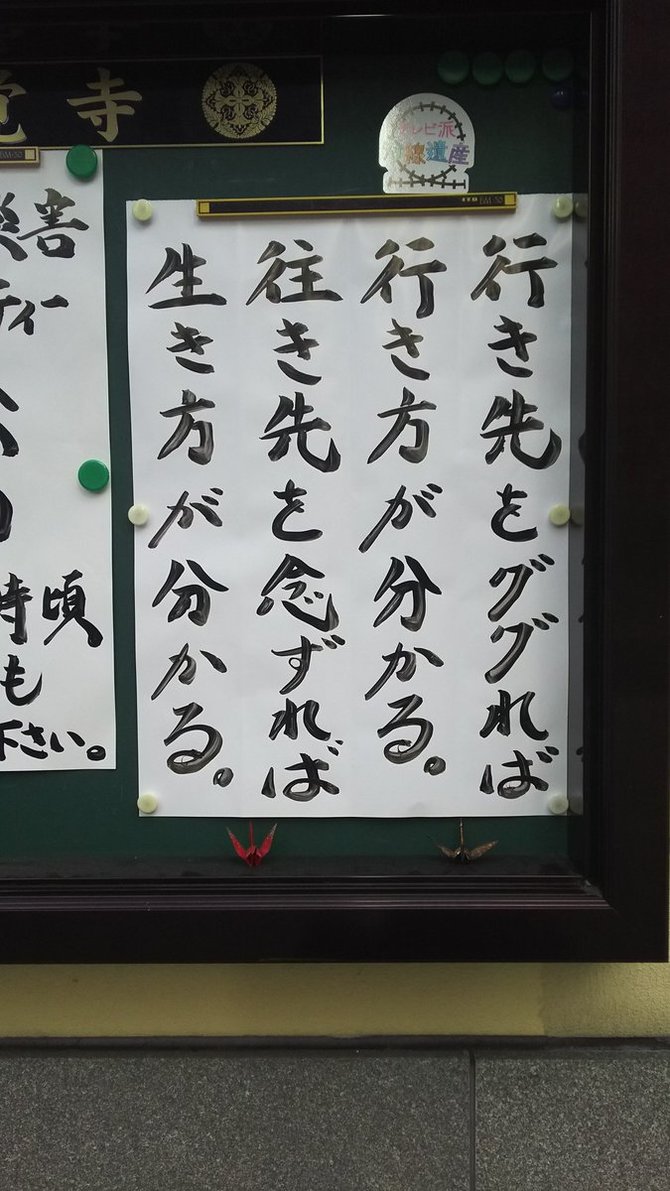 寺
テレビ派
線遺産
BM-50
行き先をググれば
行き方が分かる。
往き先を念ずれば
生き方が分かる。
災害
ティー
時頃
も
下さい。